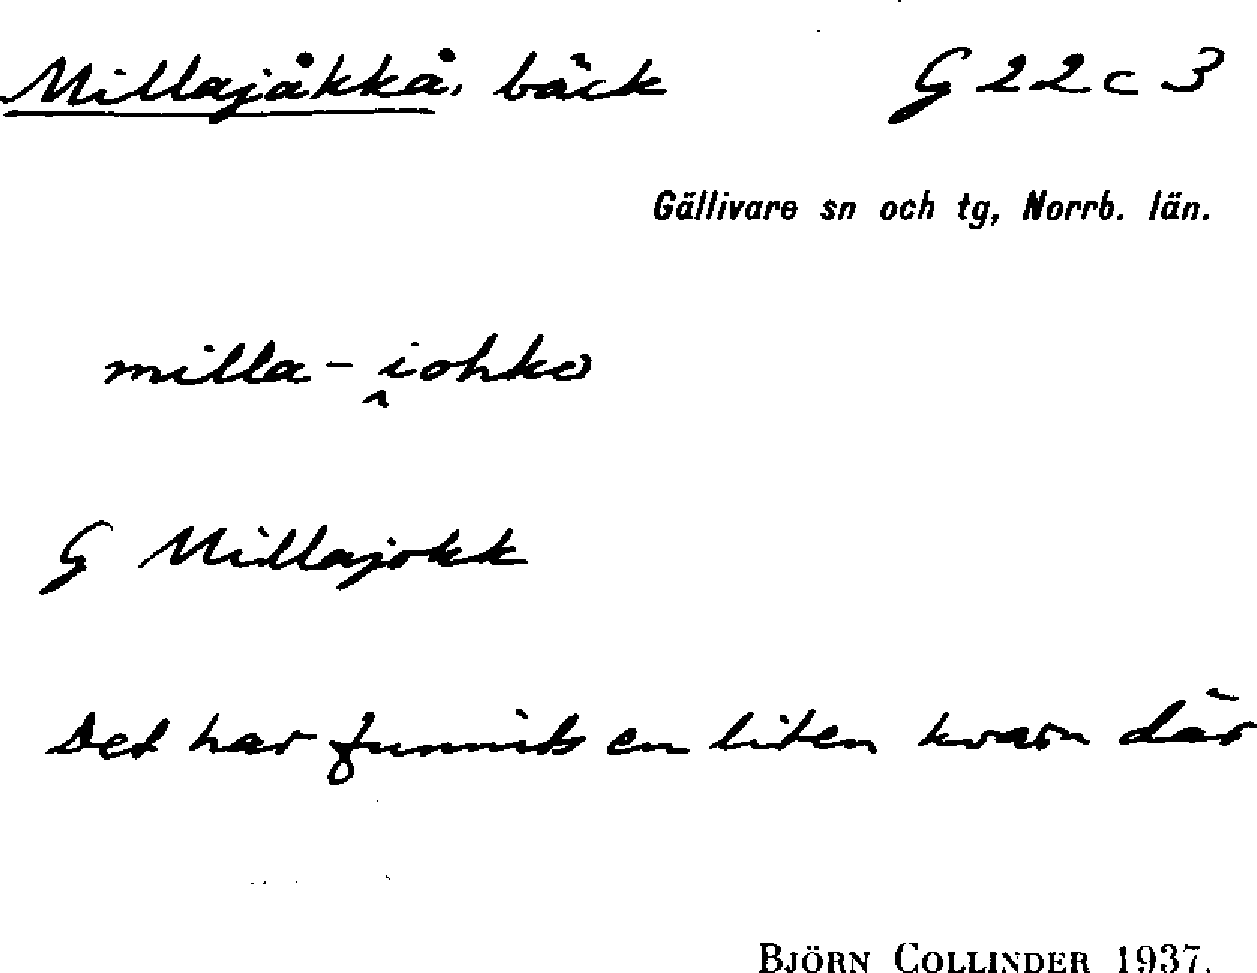 Millajåkkå, bäck G 22 c 3
Gällivare sn och tg, Norrb. län.
milla-i̯ohko
G Millajokk
Det har funnits en liten kvarn där
BJÖRN COLLINDER 1937.